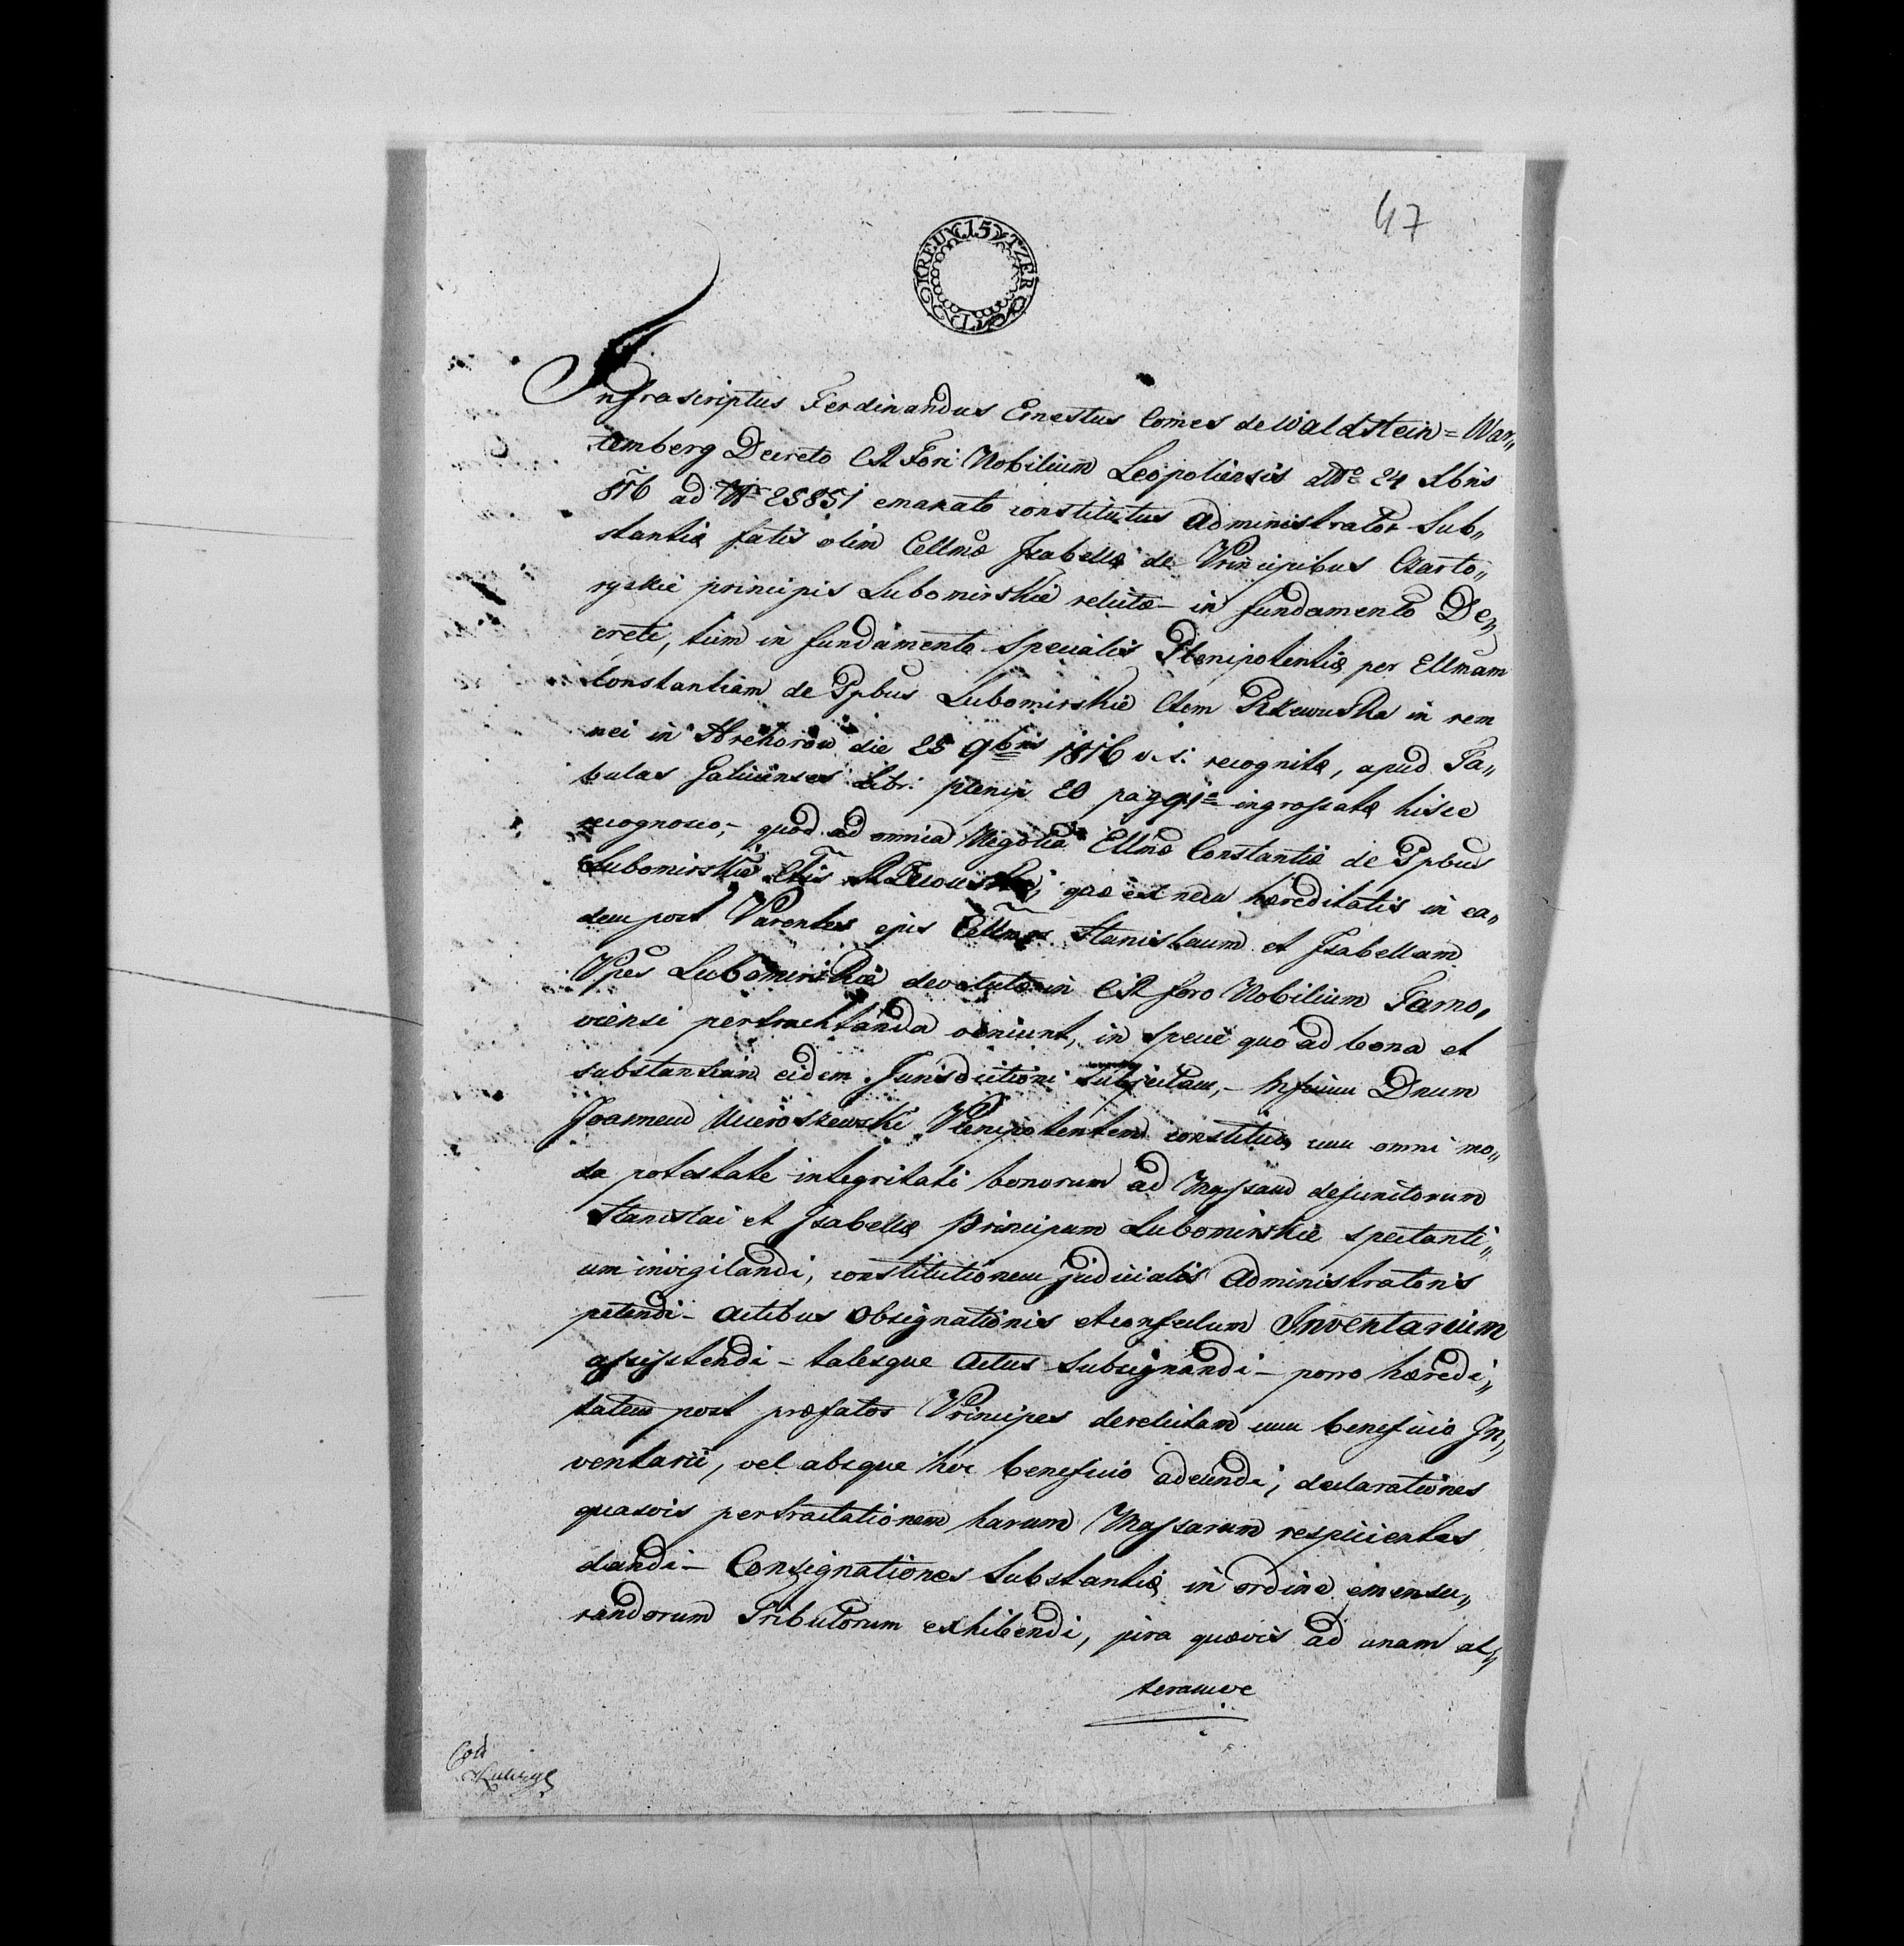 47
15 KREUTZER C.M.
Infrascriptus Ferdinandus Ernestus Comes de Waldstein=War„
temberg Decreto CR Fori Nobilium Leopoliensis ddto 24 Xbris
816 ad Nr 25851 emanato constitutus administrator Sub„
stantiæ fatis olim Cellmæ Isabellæ de Principibus Czarto„
ryskie principis Lubomirskie relictæ – in fundamento De„
creti, tum in fundamento specialis Plenipotentiæ per Ellmam
Constantiam de Ppbus Lubomirskie Ctem Rzewuska in rem
mei in die 25 9bris 1816 v. s. recognitæ, apud Ta„
bulas Galiciensex Libr: plenip 20 pag 91 ingrossatæ hisce
recognosco, quod ad omnia Negotia Ellmæ Constantiæ de Ppbus
Lubomirskie Ctis quæ ex nexu hæreditatis in ea„
dem post Parentes ejus Cellmos Stanislaum et Isabellam
Ppes Lubomirskie devolutæ in CR foro Nobilium Tarno„
viensi pertractanda veniunt, in specie quo ad bona et
substantiam eidem Jurisdictioni subjectam, – Dnum
Joannem Mieroszewski Plenipotentem constituo, cum omni mo„
da potestate integritati bonorum ad Massam defunctorum
Stanislai et Isabellæ Principum Lubomirskie spectanti„
um invigilandi, constitutionem judicialis administratoris
petendi – actibus obsignationis et confectum Inventarium
assistendi – talesque Actus subsignandi – porro hæredi„
tatem post præfatos Principes derelictam cum beneficio In„
ventarii, vel absque hoc beneficio adeundi, declarationes
quasvis pertractationem harum Massarum respicientes
dandi – Consignationes Substantiæ in ordine emensu„
randorum Tributorum exhibendi, jura quævis ad unam al„
teramve